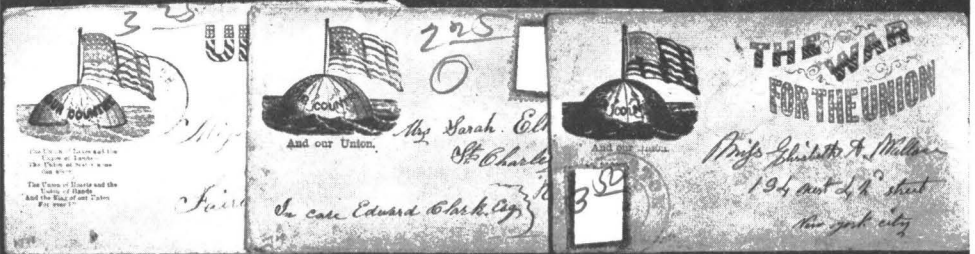 3 25
OUR COUNTRY
The Union of Lakes and the
Union of Lands
The Union of States none
can sever
The Union of Hearts and the
Union of Hands
And the Flag of our Union
For ever!
Fair
2 25
O
COUNT
And our Union.
Mrs Sarah. El
St Charle
In care Edward Clark. Esq
THE WAR
FOR THE UNION
COUN
And our Union.
Miss Elizabeth A.
194 street
New york city
3 50